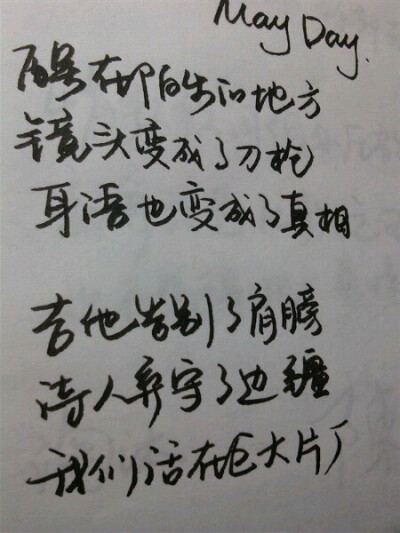 May Day.
在 地方
镜头变成了刀枪
耳语也变成了真相
吉他告别了肩膀
诗人弃守了边疆
我们活在巨大片厂